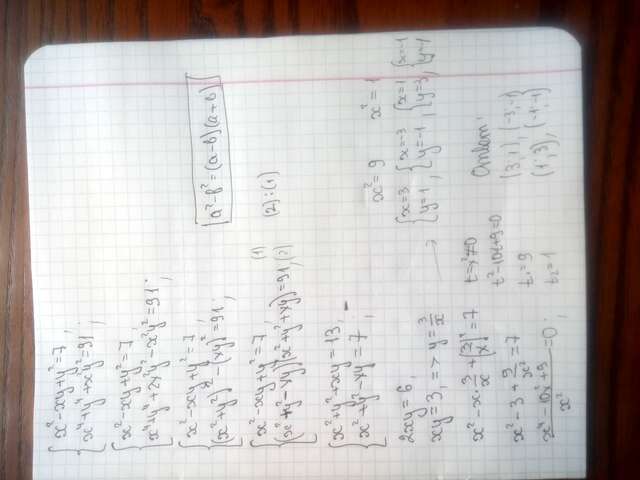 { x² - xy + y² = 7,
{ x⁴ + y⁴ + x²y² = 91;
{ x² - xy + y² = 7,
{ x⁴ + y⁴ + 2x²y² - x²y² = 91;
{ x² - xy + y² = 7,
{ (x² + y²)² - (xy)² = 91;
a² - b² = (a - b)(a + b)
{ x² - xy + y² = 7, (1)
{ (x² + y² - xy)(x² + y² + xy) = 91 (2)
(2) : (1)
{ x² + y² + xy = 13,
{ x² + y² - xy = 7; -
2xy = 6,
xy = 3, => y = 3/x
x² - x · 3/x + (3/x)² = 7
x² - 3 + 9/x² = 7
(x⁴ - 10x² + 9)/x² = 0;
→
t = x² ≠ 0
t² - 10t + 9 = 0
t₁ = 9
t₂ = 1
x² = 9 x² = 1
{ x = 3 { x = -3 { x = 1 { x = -1
{ y = 1, { y = -1, { y = 3, { y = -1
Ответ:
(3; 1), (-3; -1)
(1; 3), (-1; -1)